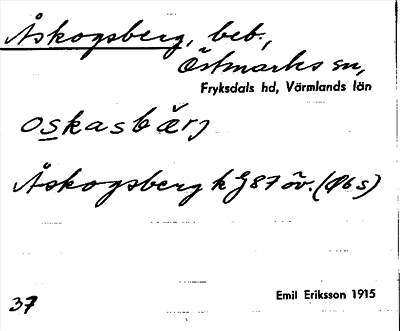 Åskogsberg, beb.,
Östmarks sn,
Fryksdals hd, Värmlands län
oskasbärj
Åskogsberg k G87 öv. (Øbs)
Emil Eriksson 1915
37